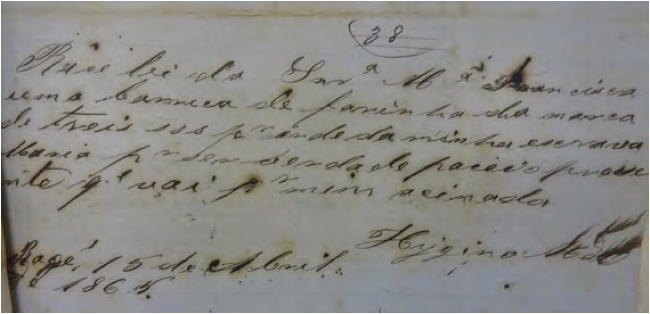 38
Recebi da Snr.ª M.ª Francisca
uma barrica de farinha da marca
de treis sss p.r onde da minha escrava
Maria p.r ser verdade paceio prese
nte q.' vai p.r mim acinado
Bagé, 15 de Abril
de 186
Hygino